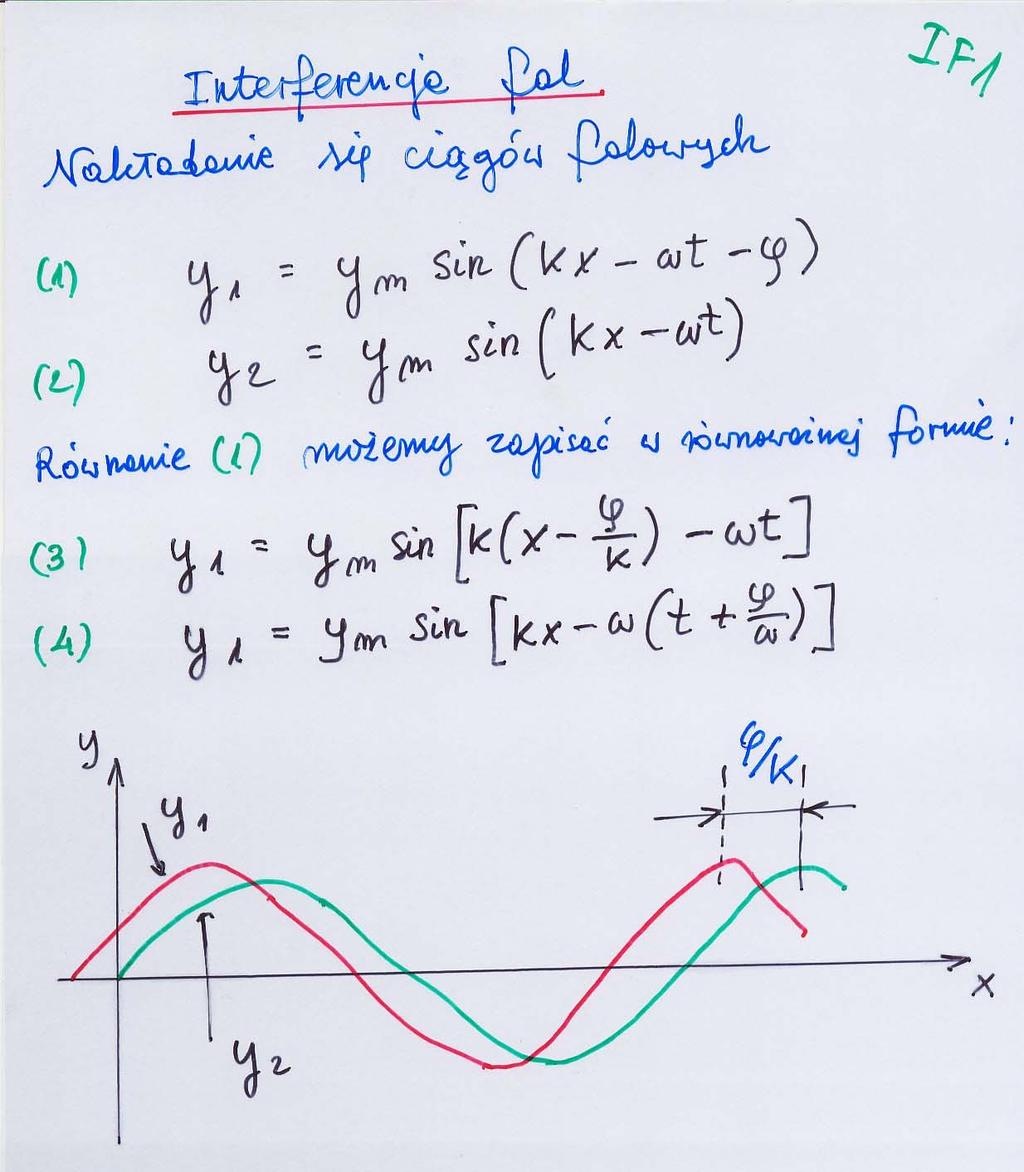 IF1
Interferencja fal
Nakładanie się ciągów falowych
(1) y₁ = yₘ sin (kx - ωt - φ)
(2) y₂ = yₘ sin (kx - ωt)
Równanie (1) możemy zapisać w równoważnej formie:
(3) y₁ = yₘ sin [k(x - φ/k) - ωt]
(4) y₁ = yₘ sin [kx - ω(t + φ/ω)]
φ/k
y
y₁
x
y₂